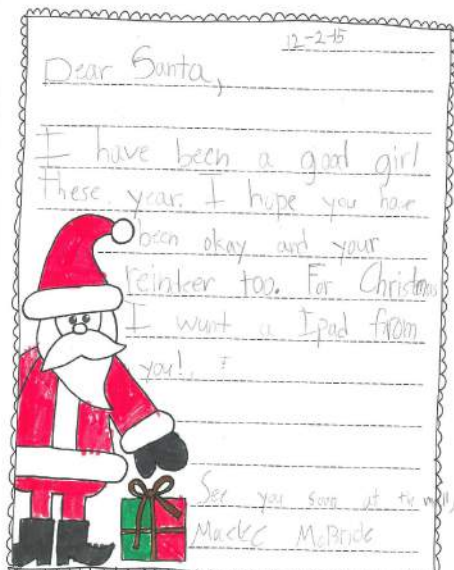 12-2-15
Dear Santa,
I have been a good girl
These year. I hope you have
been okay and your
reinteer too. For Christmas
I wunt a Ipad from
you!
See you soon at the mall,
McBride